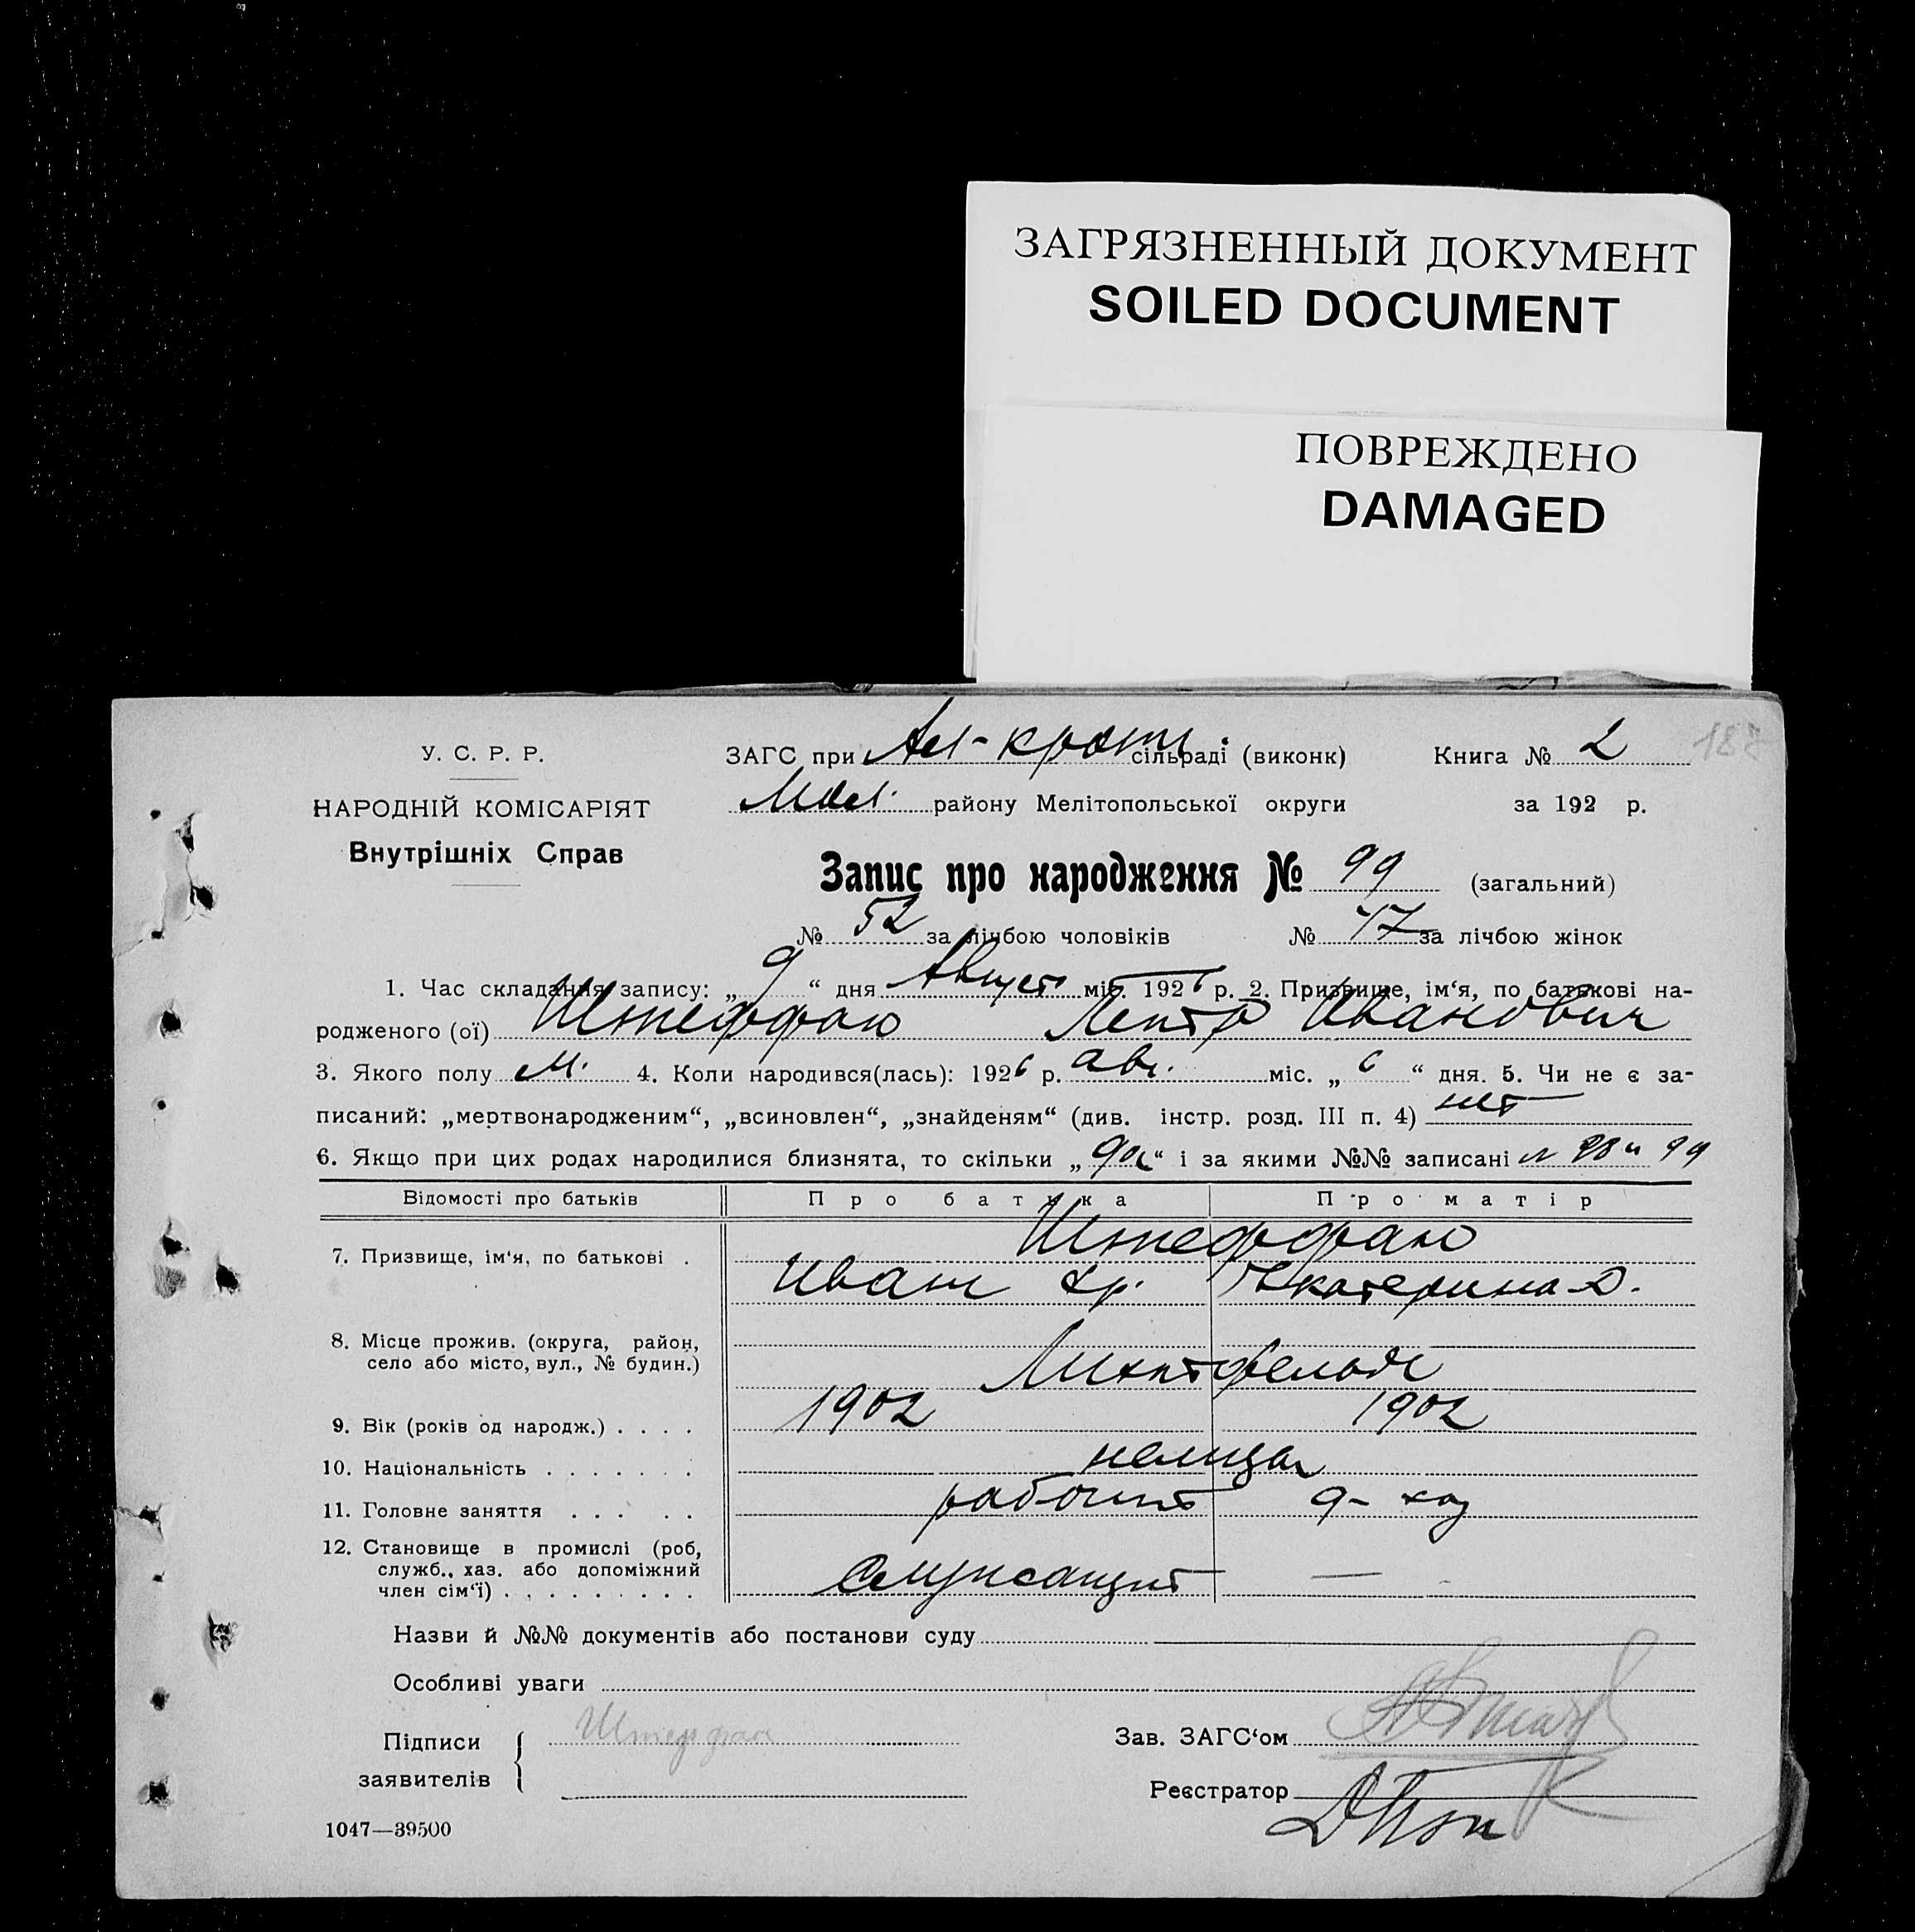 ЗАГРЯЗНЕННЫЙ ДОКУМЕНТ
SOILED DOCUMENT
ПОВРЕЖДЕНО
DAMAGED
187
У. С. Р. Р.
НАРОДНІЙ КОМІСАРІЯТ
Внутрішніх Справ
ЗАГС при сільраді (виконк) Книга № 2
району Мелітопольської округи за 192 р.
Запис про народження № 99 (загальний)
№ 52 за лічбою чоловіків № 47 за лічбою жінок
1. Час складання запису: „ 9 “ дня Август міс. 1926 р. 2. Призвище, ім‘я, по батькові на-
родженого (ої) Штеффан Петр Иванович
3. Якого полу м. 4. Коли народився(лась): 1926 р. авг. міс. „ 6 “ дня. 5. Чи не є за-
писаний: „мертвонародженим“, „всиновлен“, „знайденям“ (див. інстр. розд. III п. 4) нет
6. Якщо при цих родах народилися близнята, то скільки „ “ і за якими №№ записані № 98 и 99
Відомості про батьків Про батька Про матір
7. Призвище, ім‘я, по батькові . Штеффан
Иван Хр. Екатерина
8. Місце прожив. (округа, район,
село або місто, вул., № будин.) Лихтфельде
9. Вік (років од народж.) . . . . 1902 1902
10. Національність . . . . . . . немцы
11. Головне заняття . . . . . рабочий д-хоз
12. Становище в промислі (роб,
служб., хаз. або допоміжний
член сім‘ї) . . . . . . . . . Служащий —
Назви й №№ документів або постанови суду
Особливі уваги
Підписи
заявителів Штеффан
Зав. ЗАГС‘ом
Реєстратор
1047—39500